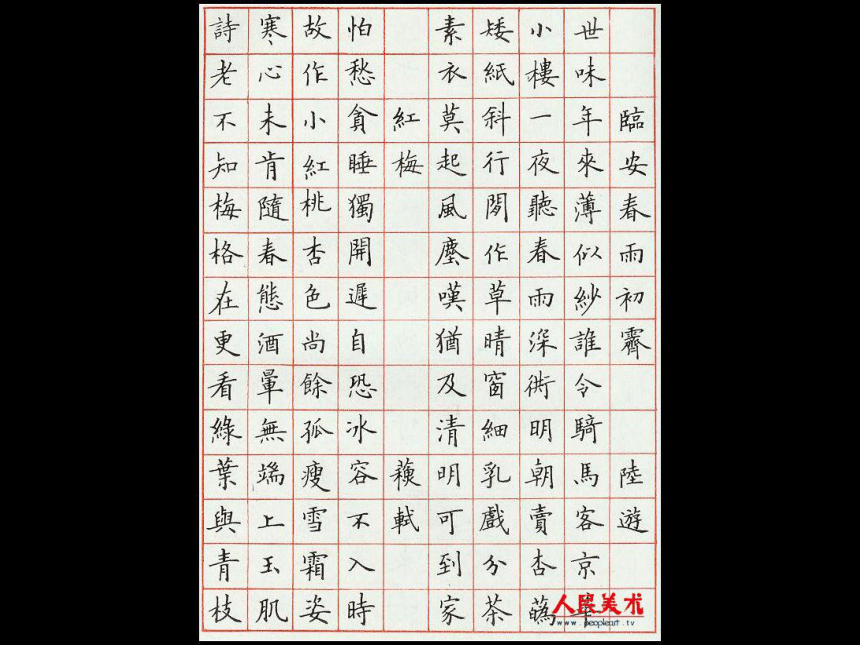 臨安春雨初霽 陸遊
世味年來薄似紗誰令騎馬客京華
小樓一夜聽春雨深衖明朝賣杏蘤
矮紙斜行閒作草晴窗細乳戲分茶
素衣莫起風塵嘆猶及清明可到家
紅梅 蘓軾
怕愁貪睡獨開遲自恐冰容不入時
故作小紅桃杏色尚餘孤瘦雪霜姿
寒心未肯隨春態酒暈無端上玉肌
詩老不知梅格在更看綠葉與青枝
人民美术
www.peopleart.tv